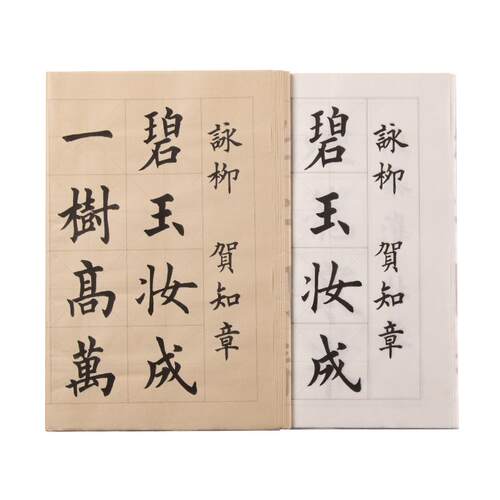 詠柳 賀知章
碧玉妝成
一樹高萬
詠柳 賀知章
碧玉妝成